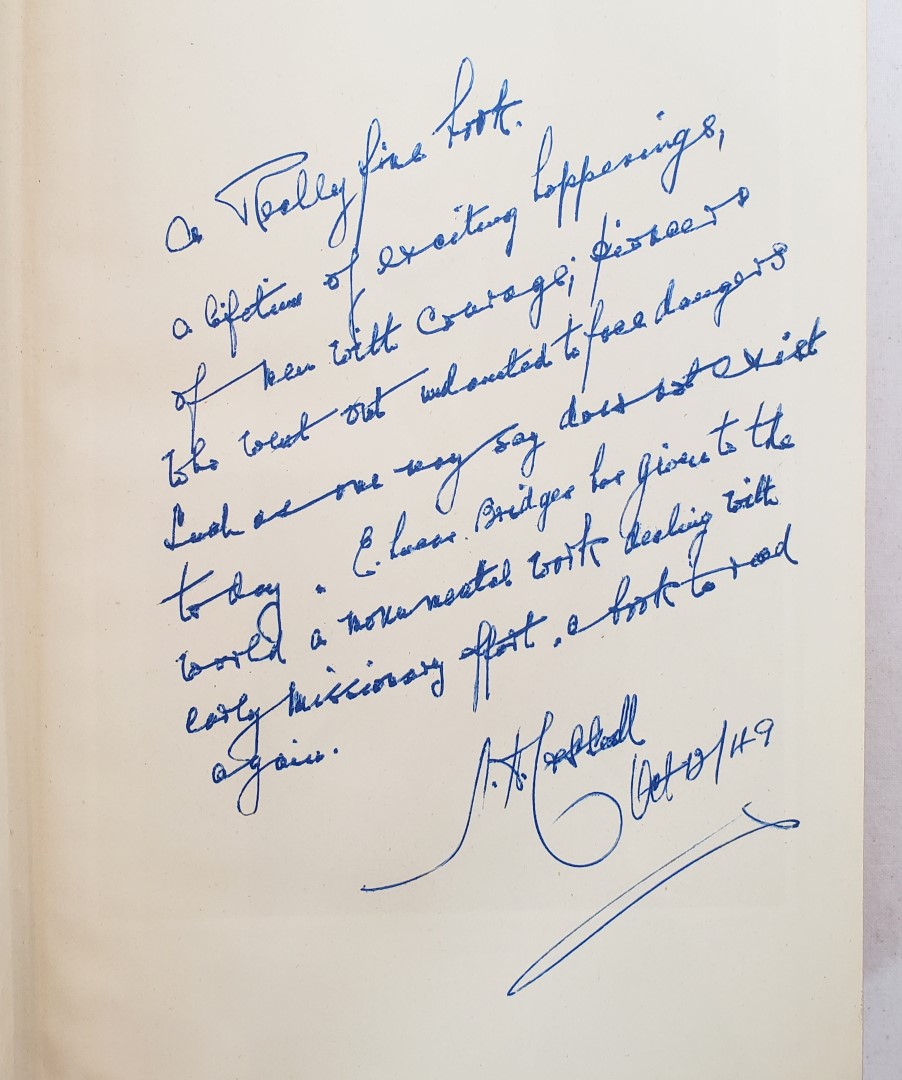 a Really fine book.
a lifetime of exciting happenings,
of men with courage; pioneers
who went out undaunted to face dangers
such as one may say does not exist
to day. E. Lucas. Bridges has given to the
world a monumental work dealing with
early missionary effort. a book to read
again.
Oct 12/49